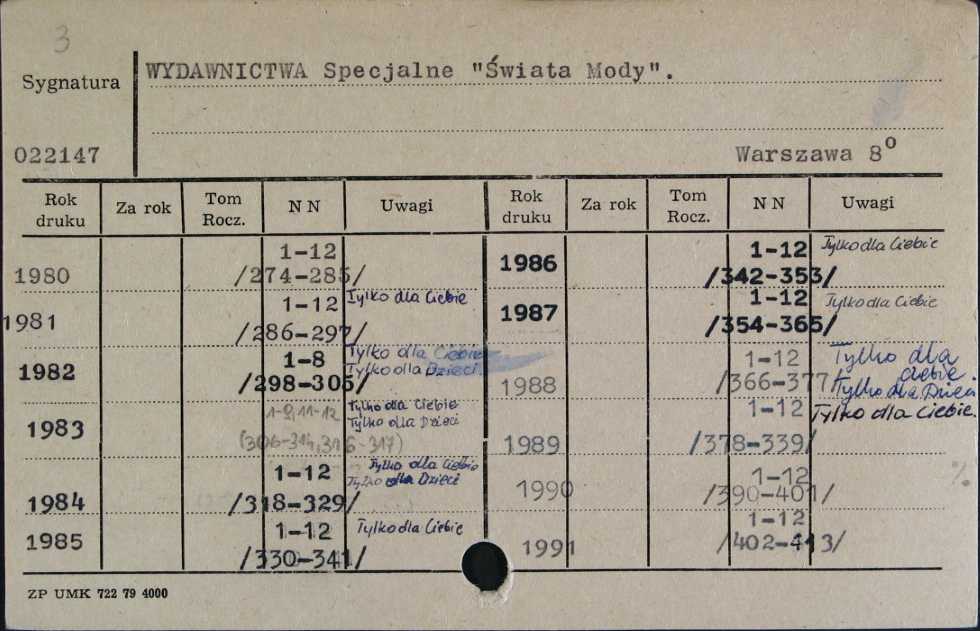 3
Sygnatura
WYDAWNICTWA Specjalne "Świata Mody".
022147
Warszawa 8⁰
Rok druku Za rok Tom Rocz. N N Uwagi Rok druku Za rok Tom Rocz. N N Uwagi
1980 1-12 /274-285/
1981 1-12 /286-297/ Tylko dla Ciebie
1982 1-8 /298-305/ Tylko dla Ciebie
Tylko dla Dzieci
1983 1-9, 11-12 (306-314, 316-317) Tylko dla Ciebie
Tylko dla Dzieci
1984 1-12 /318-329/ Tylko dla Ciebie
Tylko dla Dzieci
1985 1-12 /330-341/ Tylko dla Ciebie
1986 1-12 /342-353/ Tylko dla Ciebie
1987 1-12 /354-365/ Tylko dla Ciebie
1988 1-12 /366-377/ Tylko dla Ciebie.
Tylko dla Dzieci
1989 1-12 /378-339/ Tylko dla Ciebie.
1990 1-12 /390-401/
1991 1-12 /402-413/
%.
ZP UMK 722 79 4000